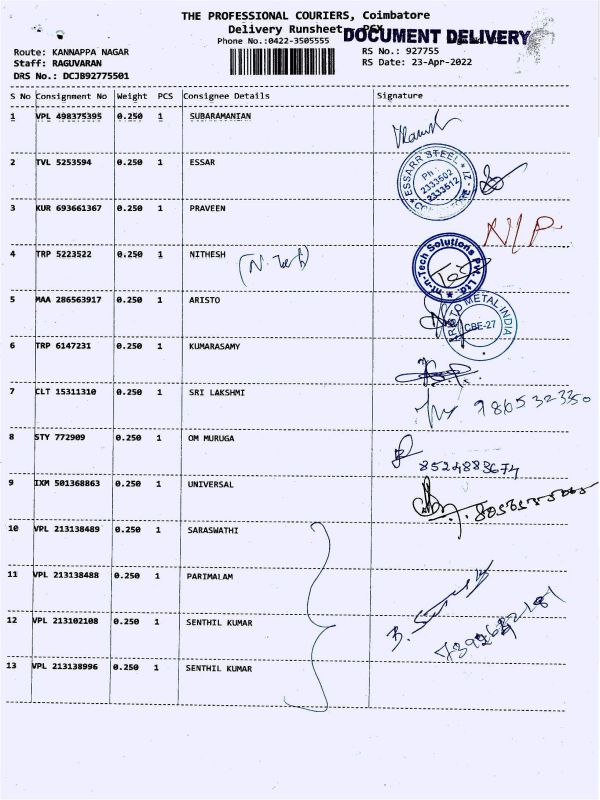 THE PROFESSIONAL COURIERS, Coimbatore
Delivery Runsheet
DOCUMENT DELIVERY
Phone No.:0422-3505555
Route: KANNAPPA NAGAR
RS No.: 927755
Staff: RAGUVARAN
RS Date: 23-Apr-2022
DRS No.: DCJB92775501
S No Consignment No Weight PCS Consignee Details Signature
1 VPL 498375395 0.250 1 SUBARAMANIAN
2 TVL 5253594 0.250 1 ESSAR
ESSARR STEEL
Ph : 2333502 2333512
3 KUR 693661367 0.250 1 PRAVEEN
N/P
4 TRP 5223522 0.250 1 NITHESH
nt-n-Tech Solutions Pvt. Ltd.
5 MAA 286563917 0.250 1 ARISTO
METAL INDIA
CBE-27
6 TRP 6147231 0.250 1 KUMARASAMY
7 CLT 15311310 0.250 1 SRI LAKSHMI
9865323350
8 STY 772909 0.250 1 OM MURUGA
8524883674
9 IXM 501368863 0.250 1 UNIVERSAL
10 VPL 213138489 0.250 1 SARASWATHI
11 VPL 213138488 0.250 1 PARIMALAM
12 VPL 213102108 0.250 1 SENTHIL KUMAR
13 VPL 213138996 0.250 1 SENTHIL KUMAR